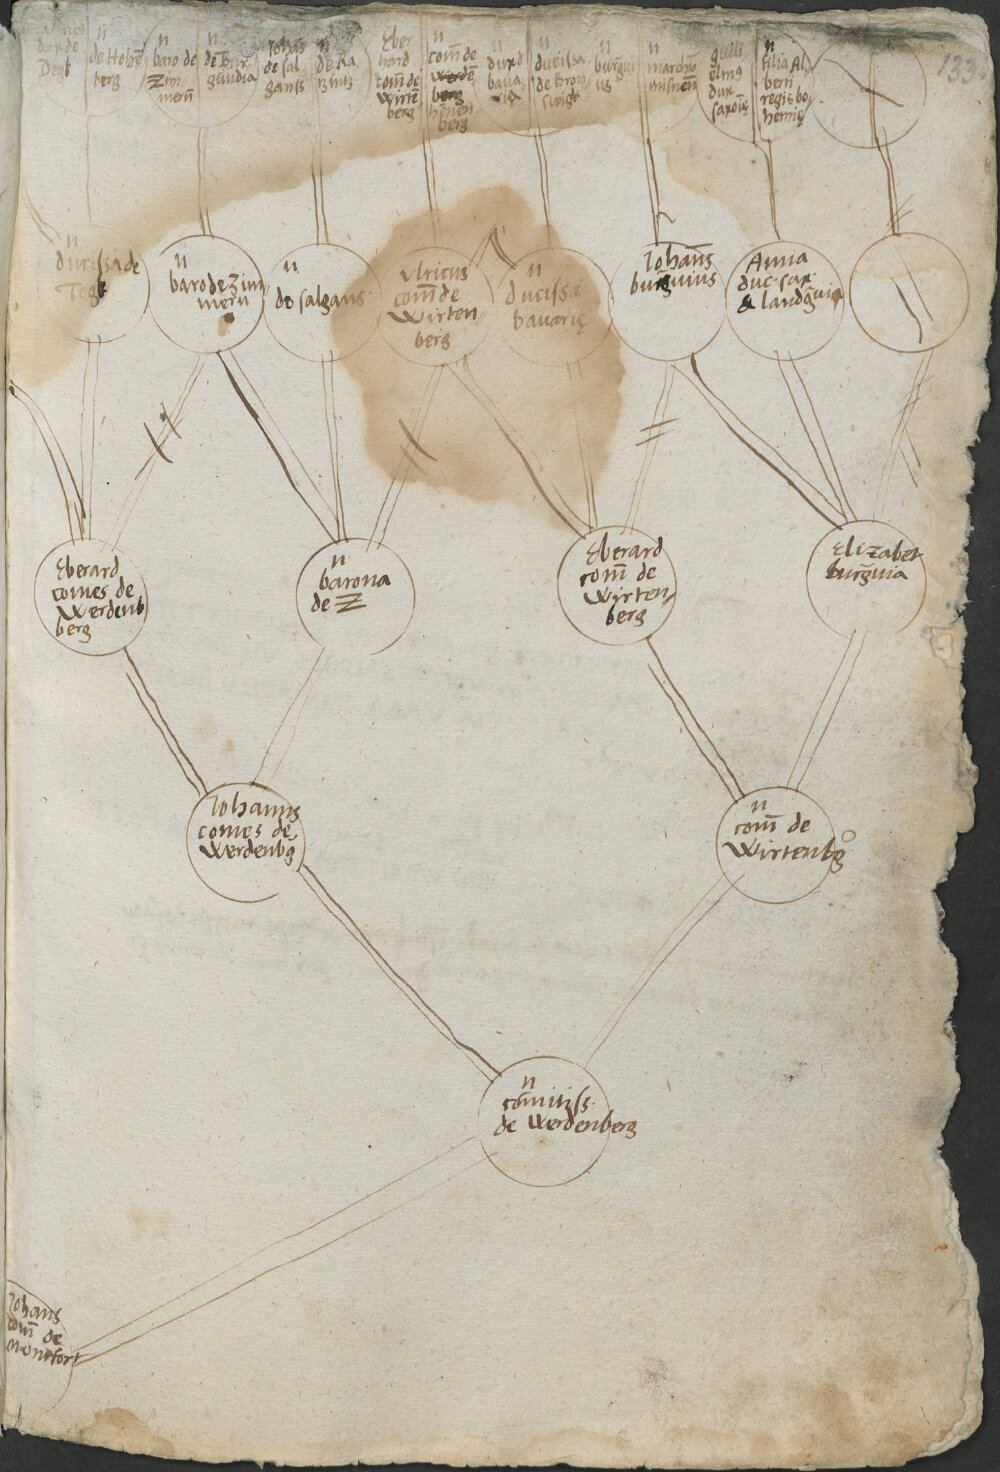 133
de Hohē
berg
n
baro de
Zim
mern
n
de Bur
gundia
Johās
de sal
gans
n
de Ra
zins
Eber
hard
com̄ de
Wirtē
berg
n
com̄ de
werdē
berg
hēnen
berg
n
dux d
bava
rię
n
ducissa
de bron
swigk
n
burgui
us
n
marchio
misnen̄
guili
elmꝯ
dux
saxoię
n
filia Al
berti
regis bo
hemię
n
ducissa de
Tegk
n
baro de Zim
mern
n
de salgans
Ulricus
com̄ de
Wirten
berg
n
ducissa
bavarię
Johan̄s
burḡvius
Anna
duc· sax·
& landḡvia
Eberard
comes de
Werdenb
berg
n
barona
de Z
Eberard
com̄ de
Wirten
berg
Elizabet
burḡvia
Johannis
comes de
Werdenbg
n
com̄ de
Wirtenbg
n
com̄itiss·
de Werdenberg
Johans
com̄ de
Montfort